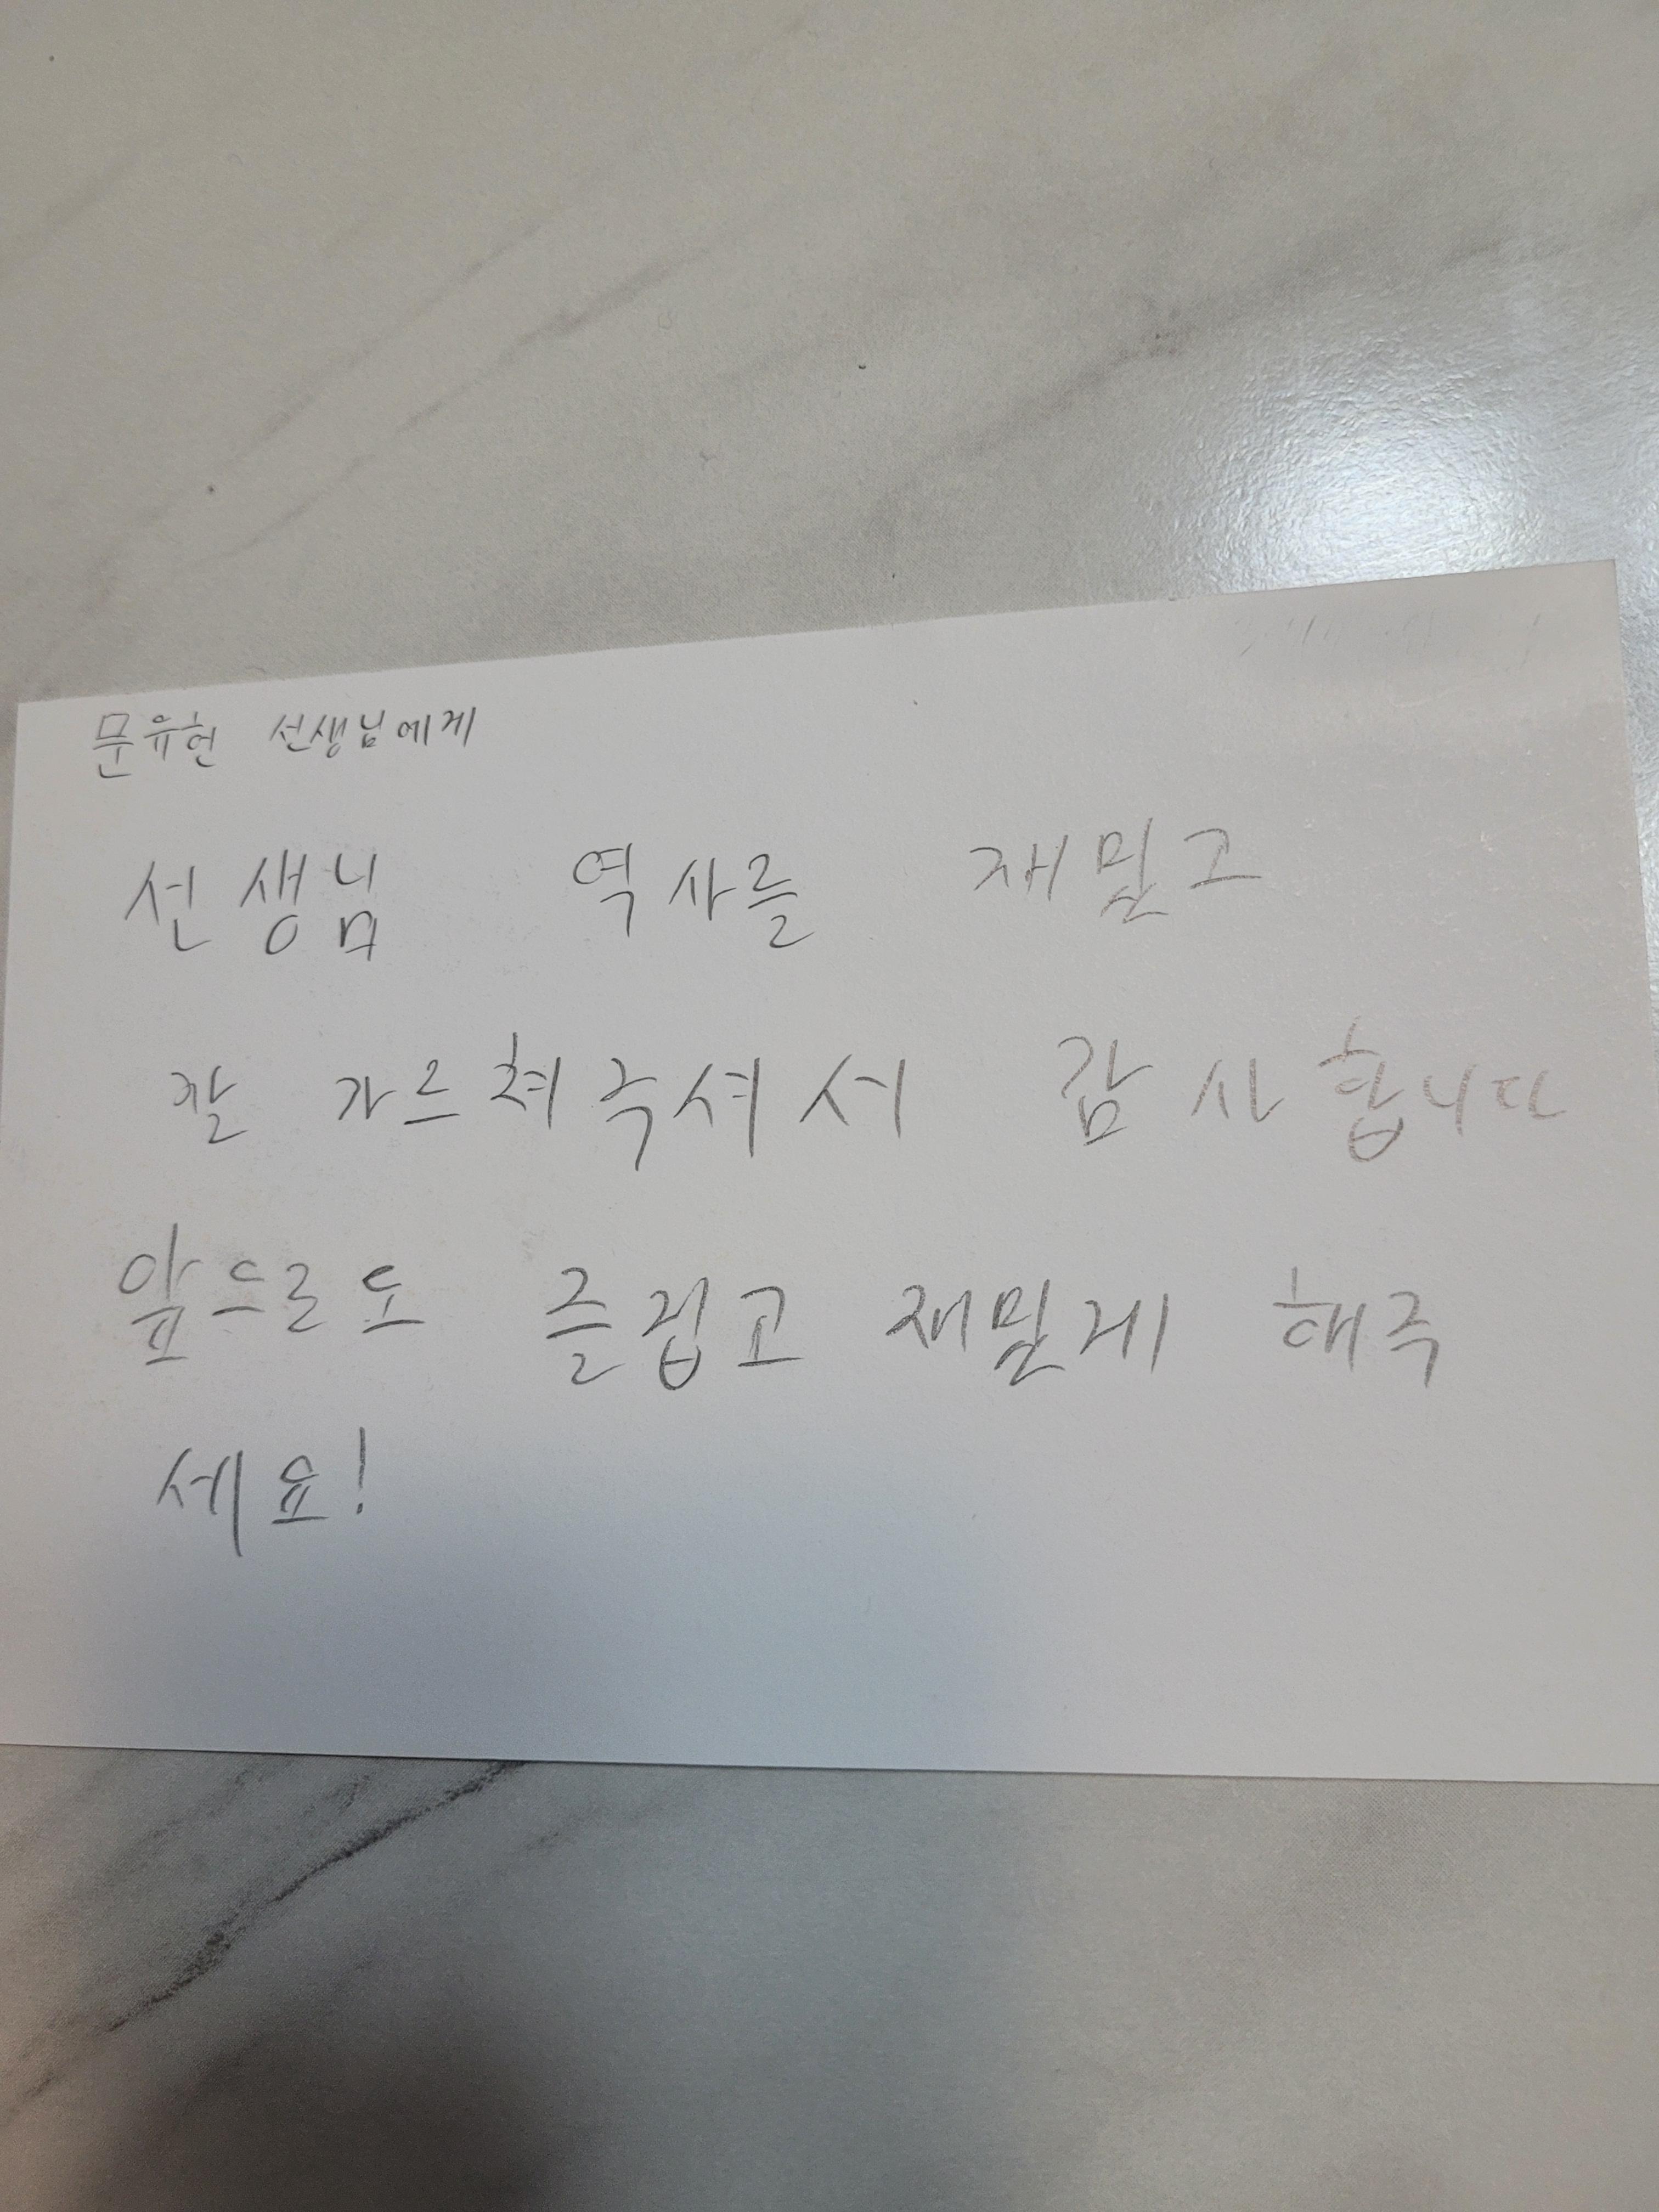 문유현 선생님에게
선생님 역사를 재밌고
잘 가르쳐주셔서 감사합니다
앞으로도 즐겁고 재밌게 해주
세요!